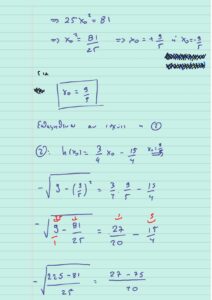 ⇒ 25x₀² = 81
⇒ x₀² = 81/25 ⇒ x₀ = + 9/5 ή x₀ = - 9/5
Για
x₀ = 9/5
αν ισχύει η ②
②: h(x₀) = 3/4 x₀ - 15/4
-√(9 - (9/5)²) = 3/4 · 9/5 - 15/4
-√(9/1 - 81/25) = 27/20 - 15/4
-√((225-81)/25) = (27-75)/20